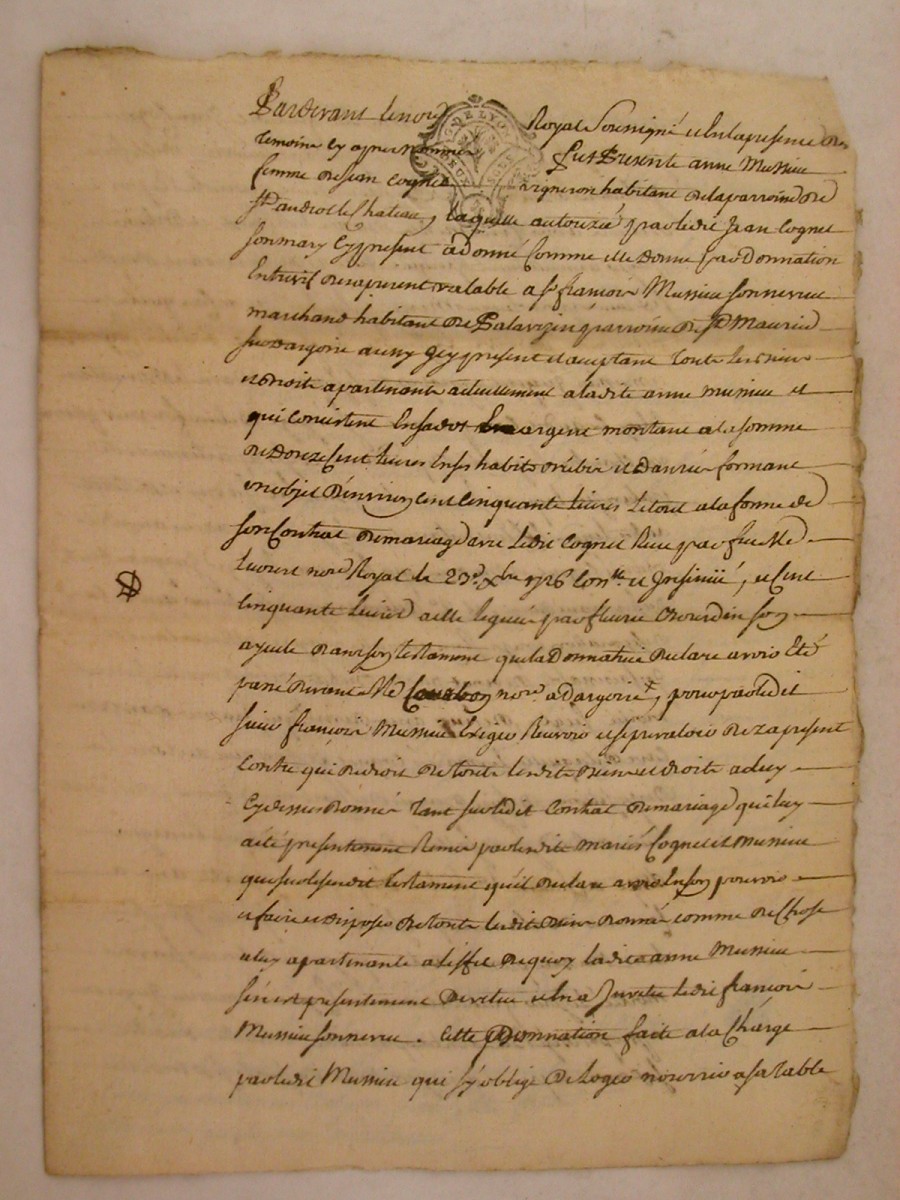 Pardevant le no.re Royal Soussigné et En la presence des
temoins cy apres nommés fut Presente anne Mussieu
femme de Jean Cognet vigneron habitant de la parroisse de
St andeol le Chateau, laquelle autorizée par ledit Jean Cognet
son mary cy present a donné Comme elle donne par Donnation
Entrevifs des apresent valable a Sr francois Mussieu son neveu
marchand habitant de parroisse de St Maurice
sur dargoire aussy icy present et acceptant toute les biens
et droits apartenants actuellement a ladite anne mussieu et
qui consistent En sa dot En argent montant a la somme
de Douze Cent livres En ses habits et danrés formant
un objet d'environ Cent Cinquante livres le tout a la forme de
son Contrat de mariage avec ledit Cognet Receu par feu Me
no.re Royal le 23e Xbre 1726 Con.lle et Insinué, et Cent
Cinquante livres a elle legués par fleurie Chourdin son
ayeule dans son testament que la Donnatrice declare avoir Eté
passé devant Me no.re a dargoire, pour par ledit
sieur francois Mussieu Exiger Recevoir et se prevaloir dez apresent
contre qui de droit de toute lesdits Biens et droits a luy
Cy dessus donnés tant sur ledit Contrat de mariage qui luy
a été presentement Remis par lesdits mariés Cognet et Mussieu
que sur lesusdit testament qu'il declare avoir En son pouvoir
et faire et disposer de toute lesdits Biens donnés comme de Chose
a luy apartenante a l'effet de quoy ladite anne Mussieu
s'en est presentement devetue et En a Investu ledit francois
Mussieu son neveu. Cette Donnation faite a la Charge
par ledit Mussieu qui s'y oblige De loger nourrir a sa table